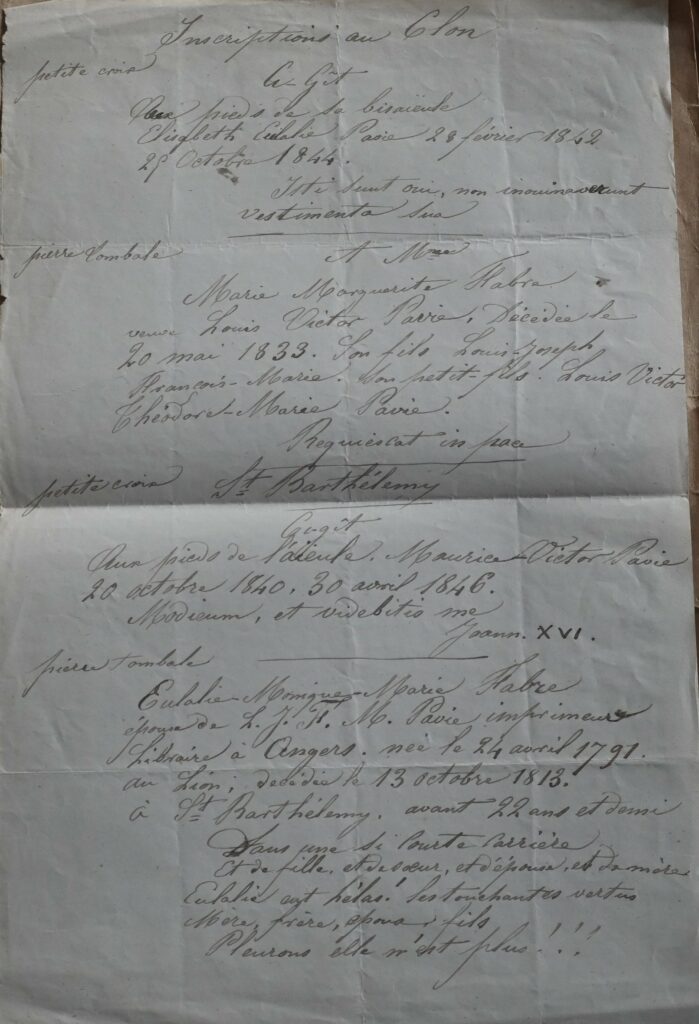 Inscriptions au Clon
petite croix
Ci-Gît
Aux pieds de sa bisaïeule
Elisabeth Eulalie Pavie 28 février 1842
25 Octobre 1844.
Isti sunt qui, non inquinaverunt
vestimenta sua
pierre tombale
A Mme
Marie Marguerite Fabre
veuve Louis Victor Pavie, Décédée le
20 mai 1833. Son fils Louis-Joseph
François-Marie. Son petit-fils. Louis Victor
Théodore-Marie Pavie.
Requiescat in pace
petite croix
St Barthélemy
Ci-gît
Aux pieds de l'aïeule. Maurice-Victor Pavie
20 octobre 1840. 30 avril 1846.
Modicum, et videbitis me
Joann. XVI.
pierre tombale
Eulalie-Monique-Marie Fabre
épouse de L. J. F. M. Pavie imprimeur
Libraire à Angers. née le 24 avril 1791.
au Lion; décédée le 13 octobre 1813.
à St Barthélemy. avant 22 ans et demi
Dans une si courte carrière
Et de fille, et de sœur, et d'épouse, et de mère
Eulalie eut hélas! les touchantes vertus
Mère, frère, époux, fils
Pleurons elle n'est plus!!!